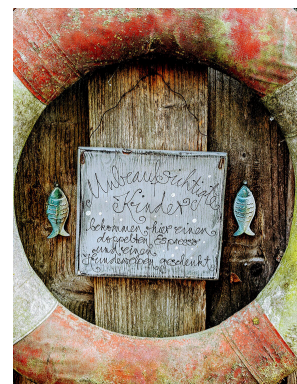 Unbeaufsichtigte
Kinder
bekommen hier einen
doppelten Espresso
und einen
Hundewelpen geschenkt